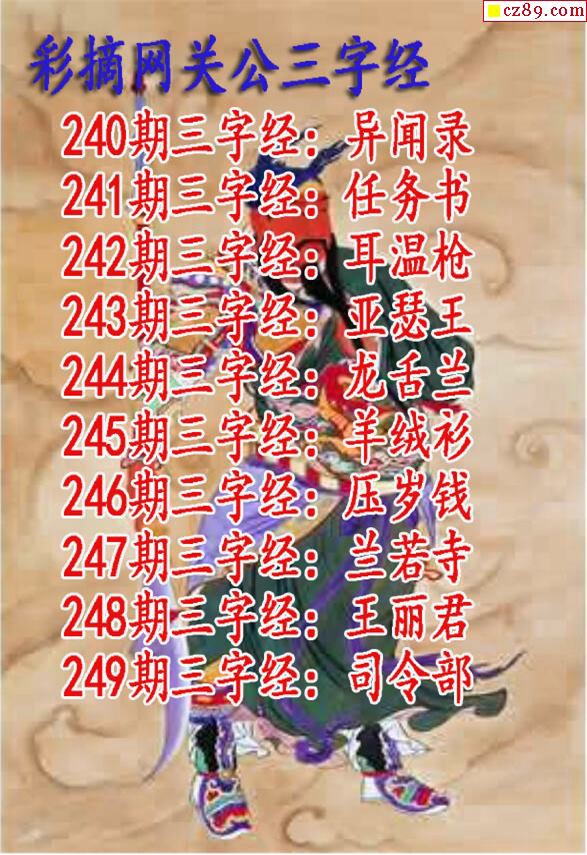 cz89.com
彩摘网关公三字经
240期三字经：异闻录
241期三字经：任务书
242期三字经：耳温枪
243期三字经：亚瑟王
244期三字经：龙舌兰
245期三字经：羊绒衫
246期三字经：压岁钱
247期三字经：兰若寺
248期三字经：王丽君
249期三字经：司令部